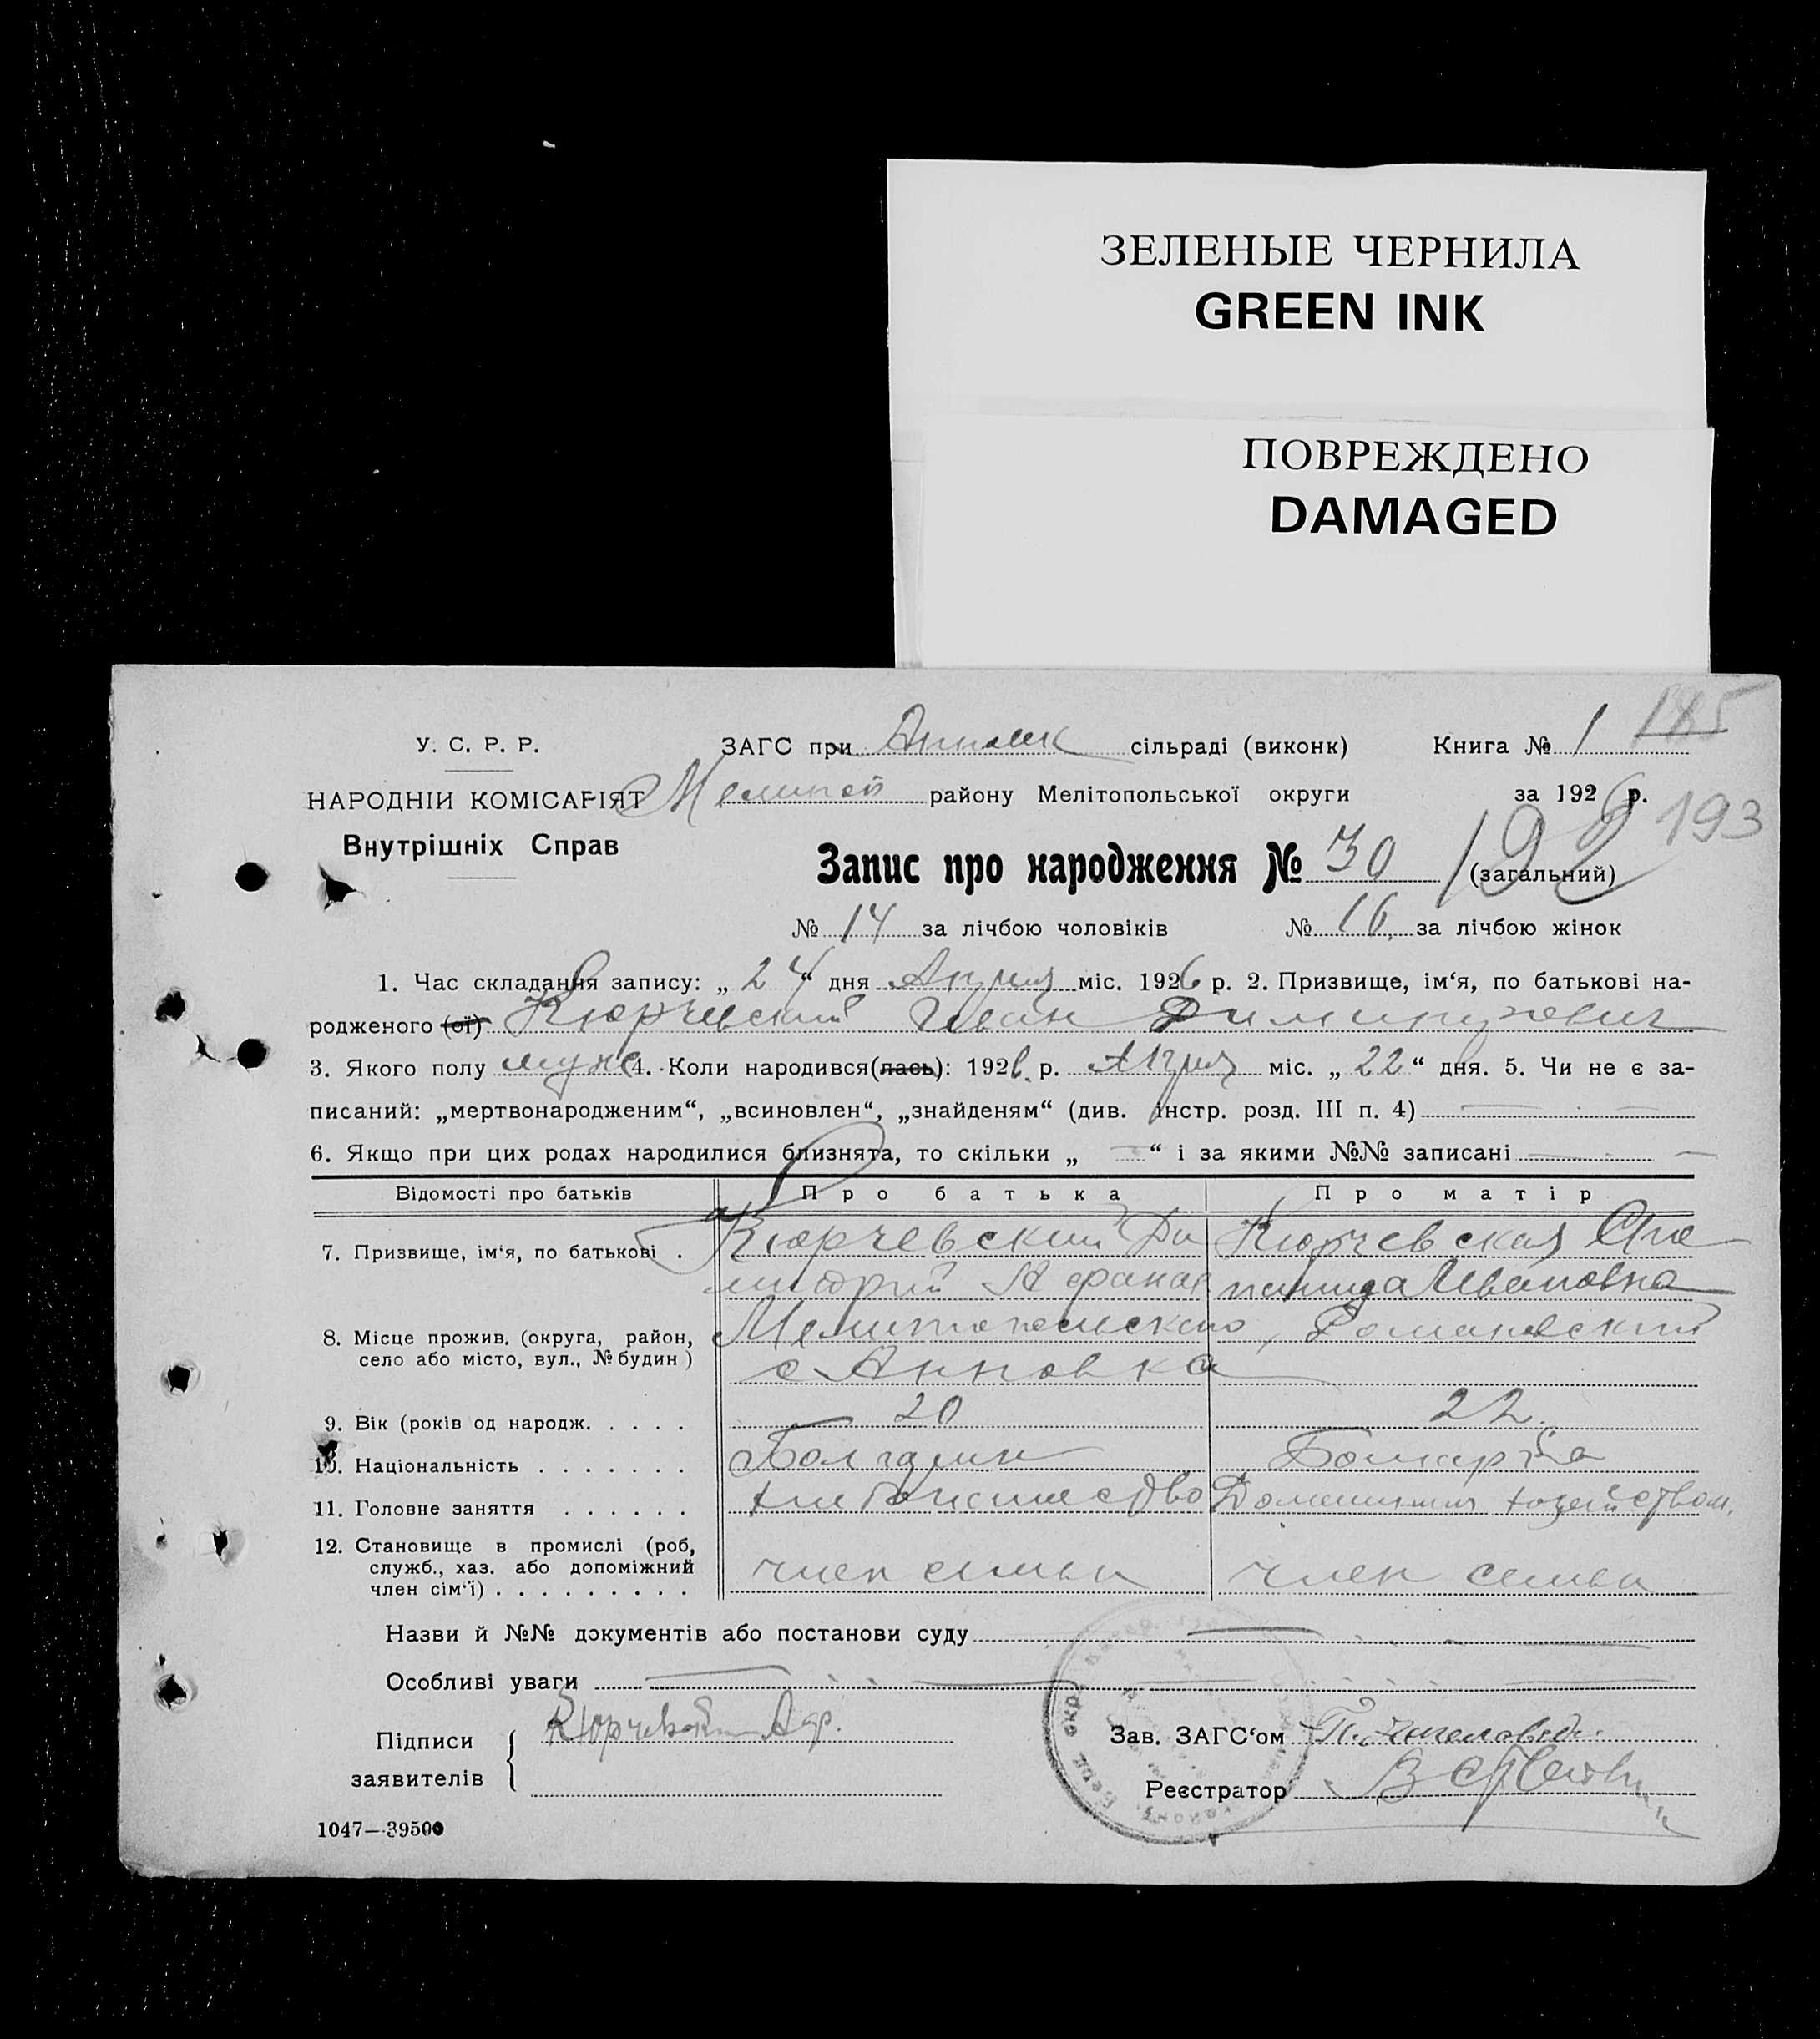 ЗЕЛЕНЫЕ ЧЕРНИЛА
GREEN INK
ПОВРЕЖДЕНО
DAMAGED
У. С. Р. Р.
НАРОДНІЙ КОМІСАРІЯТ
Внутрішніх Справ
ЗАГС при сільраді (виконк) Книга № 1 185
Мелитоп району Мелітопольської округи за 1926 р.
193
Запис про народження № 30 192 (загальний)
№ 14 за лічбою чоловіків № 16 за лічбою жінок
1. Час складання запису: „ 24 “ дня Апреля міс. 1926 р. 2. Призвище, ім‘я, по батькові на-
родженого (ої) Кюрчевский Иван Димитрович
3. Якого полу муж 4. Коли народився(лась): 1926 р. Апреля міс. „ 22 “ дня. 5. Чи не є за-
писаний: „мертвонародженим“, „всиновлен“, „знайденям“ (див. інстр. розд. III п. 4)
6. Якщо при цих родах народилися близнята, то скільки „ “ і за якими №№ записані
Відомості про батьків Про батька Про матір
7. Призвище, ім‘я, по батькові . Кюрчевский Ди Кюрчевская Сте
митрий Афанас панида Ивановна
8. Місце прожив. (округа, район, Мелитопольского, Романовский
село або місто, вул., № будин) с Анновка
9. Вік (років од народж. . . . . 20 22.
10. Національність . . . . . . . Болгарин Болгарка
11. Головне заняття . . . . . . хлебопашество Домашним хозяйством
12. Становище в промислі (роб,
служб., хаз. або допоміжний
член сім‘ї) . . . . . . . . . член семьи член семьи
Назви й №№ документів або постанови суду
Особливі уваги
Підписи
заявителів
Кюрчевский Аф.
Зав. ЗАГС‘ом
Реєстратор
1047—39500